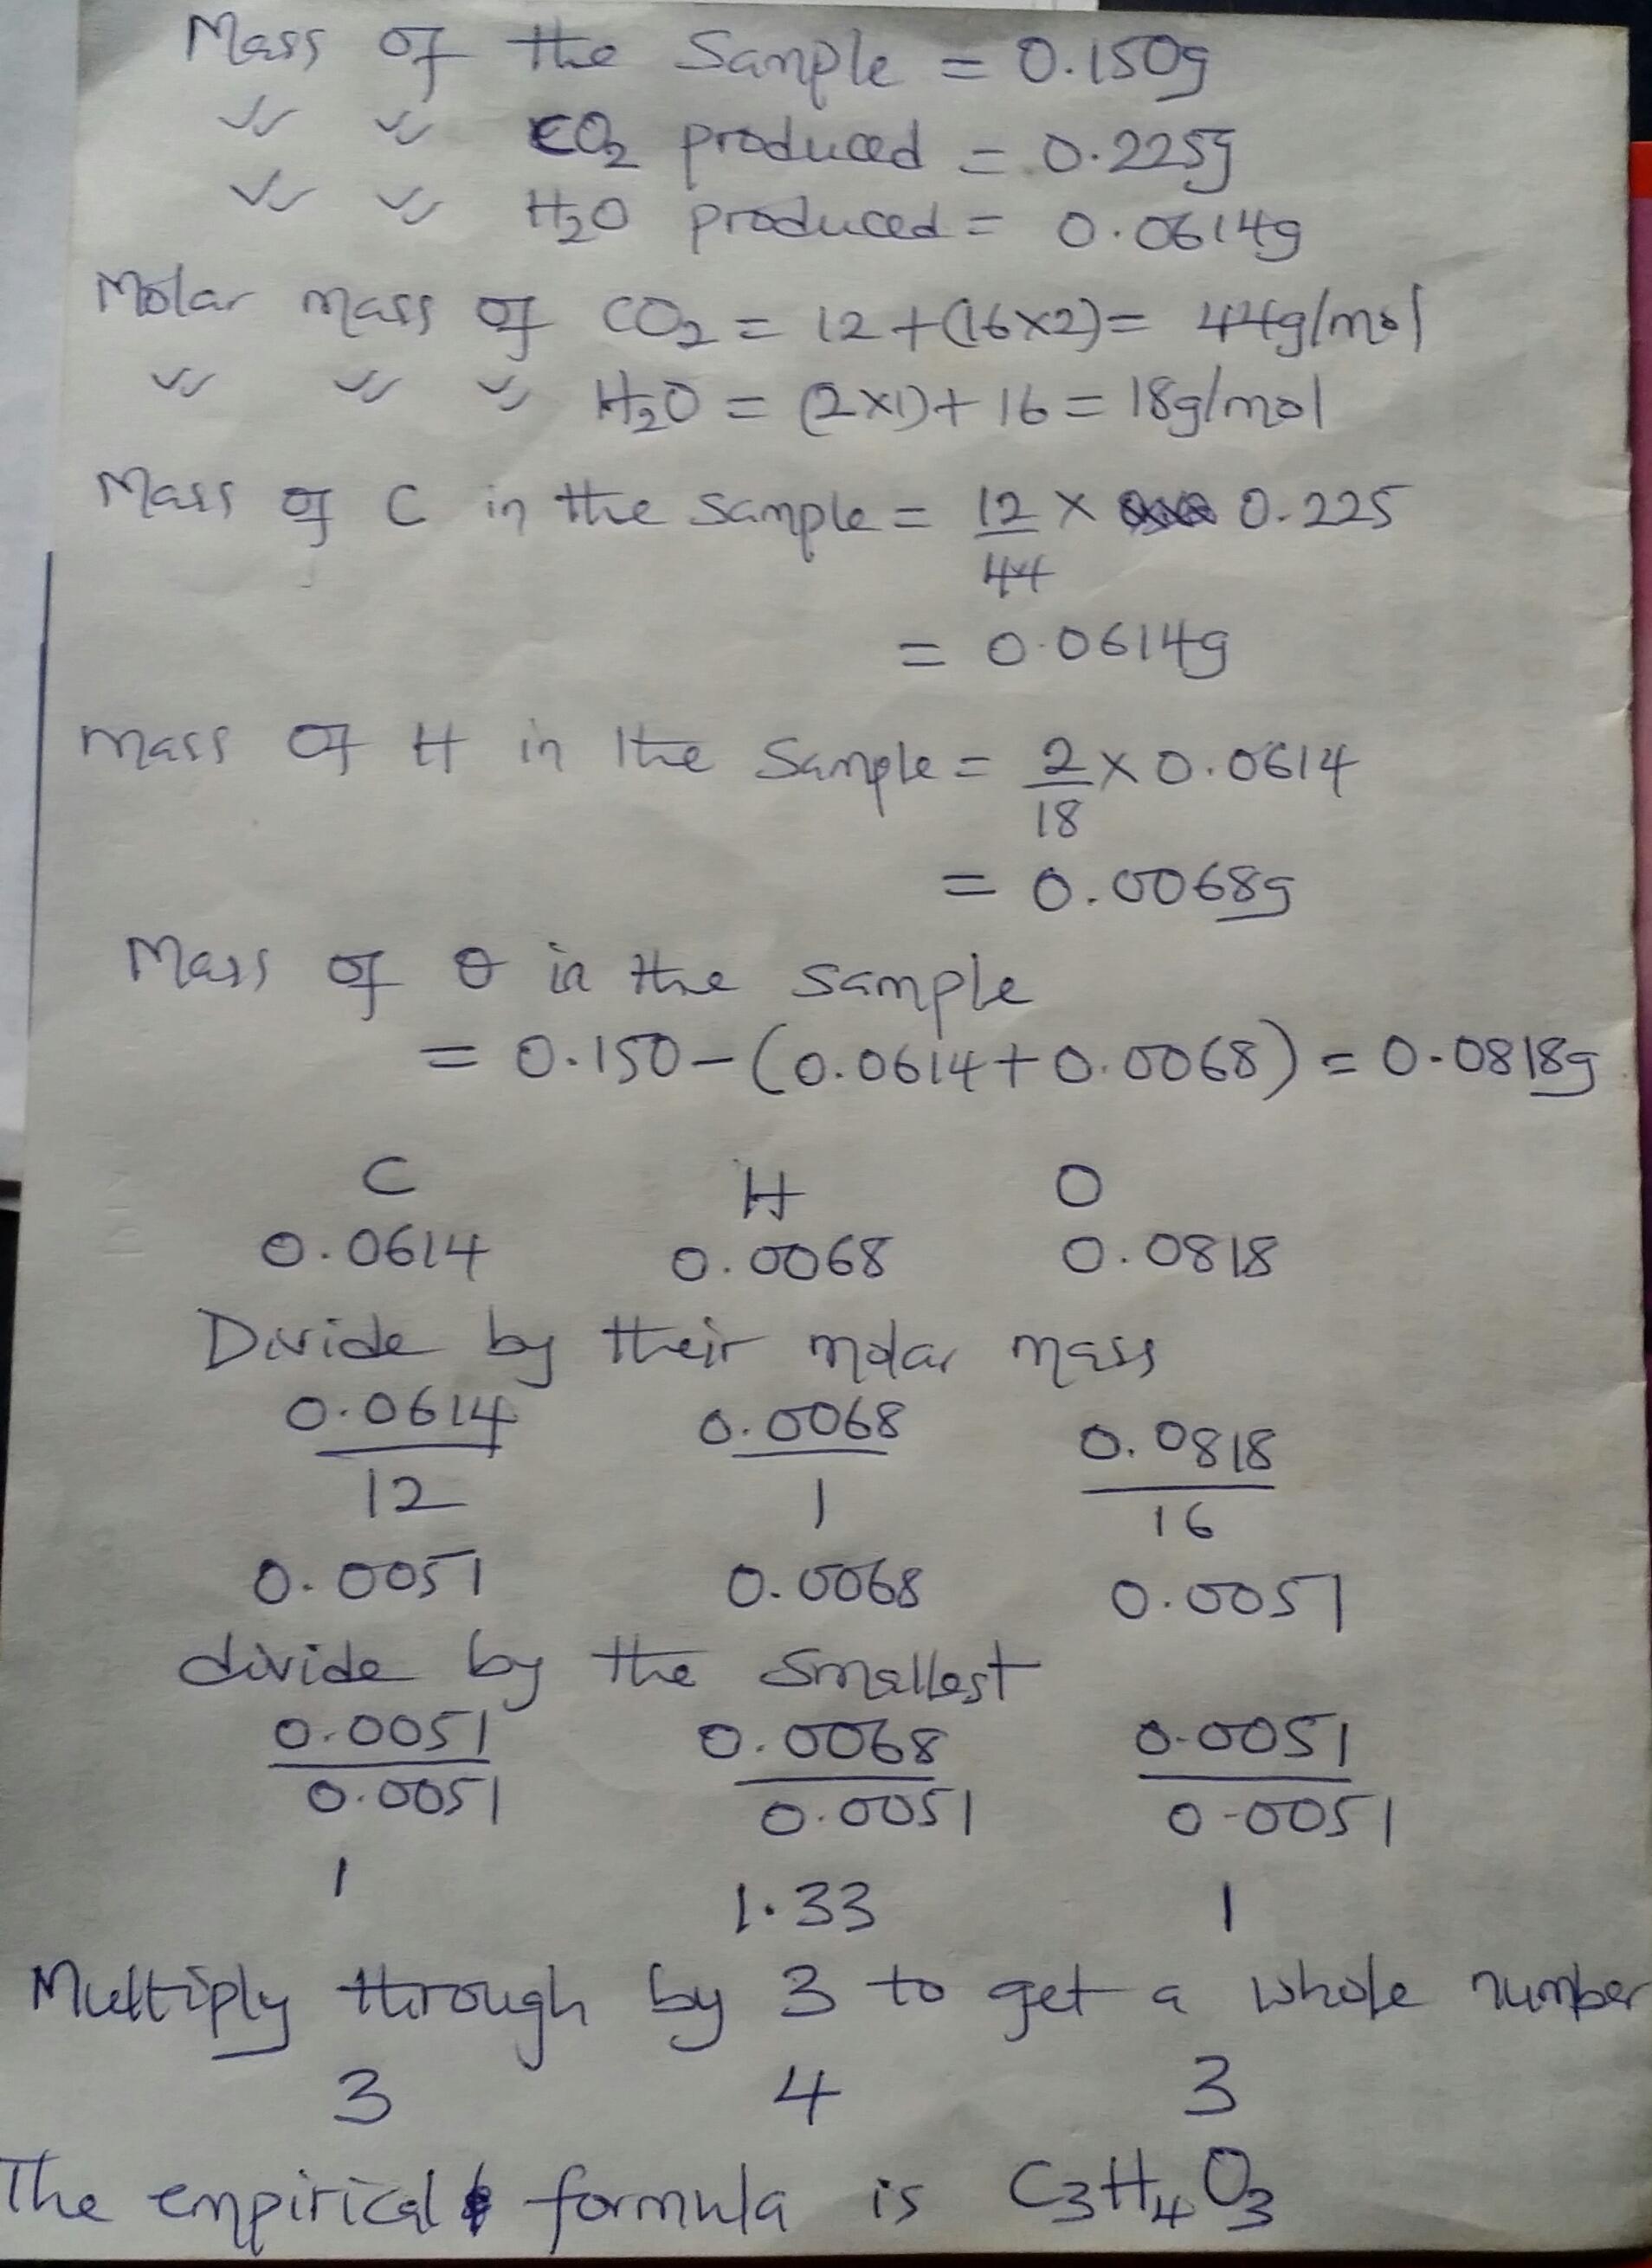 Mass of the Sample = 0.150g
〃 〃 CO₂ produced = 0.225g
〃 〃 H₂O produced = 0.0614g
Molar mass of CO₂ = 12 + (16×2) = 44g/mol
〃 〃 〃 H₂O = (2×1) + 16 = 18g/mol
Mass of C in the Sample = 12/44 × 0.225
= 0.0614g
Mass of H in the Sample = 2/18 × 0.0614
= 0.0068g
Mass of O in the Sample
= 0.150 - (0.0614 + 0.0068) = 0.0818g
C H O
0.0614 0.0068 0.0818
Divide by their molar mass
0.0614/12 0.0068/1 0.0818/16
0.0051 0.0068 0.0051
divide by the Smallest
0.0051/0.0051 0.0068/0.0051 0.0051/0.0051
1 1.33 1
Multiply through by 3 to get a whole number
3 4 3
The empirical formula is C₃H₄O₃